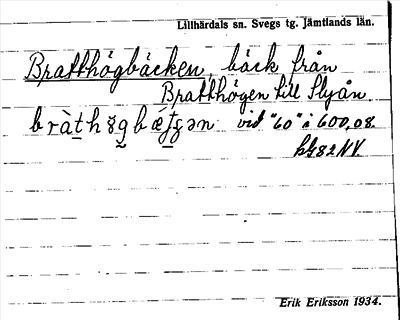 Lillhärdals sn. Svegs tg. Jämtlands län.
Bratthögbäcken, bäck från
Bratthögen till Slyån.
vid "60" i 600,08.
Erik Eriksson 1934.